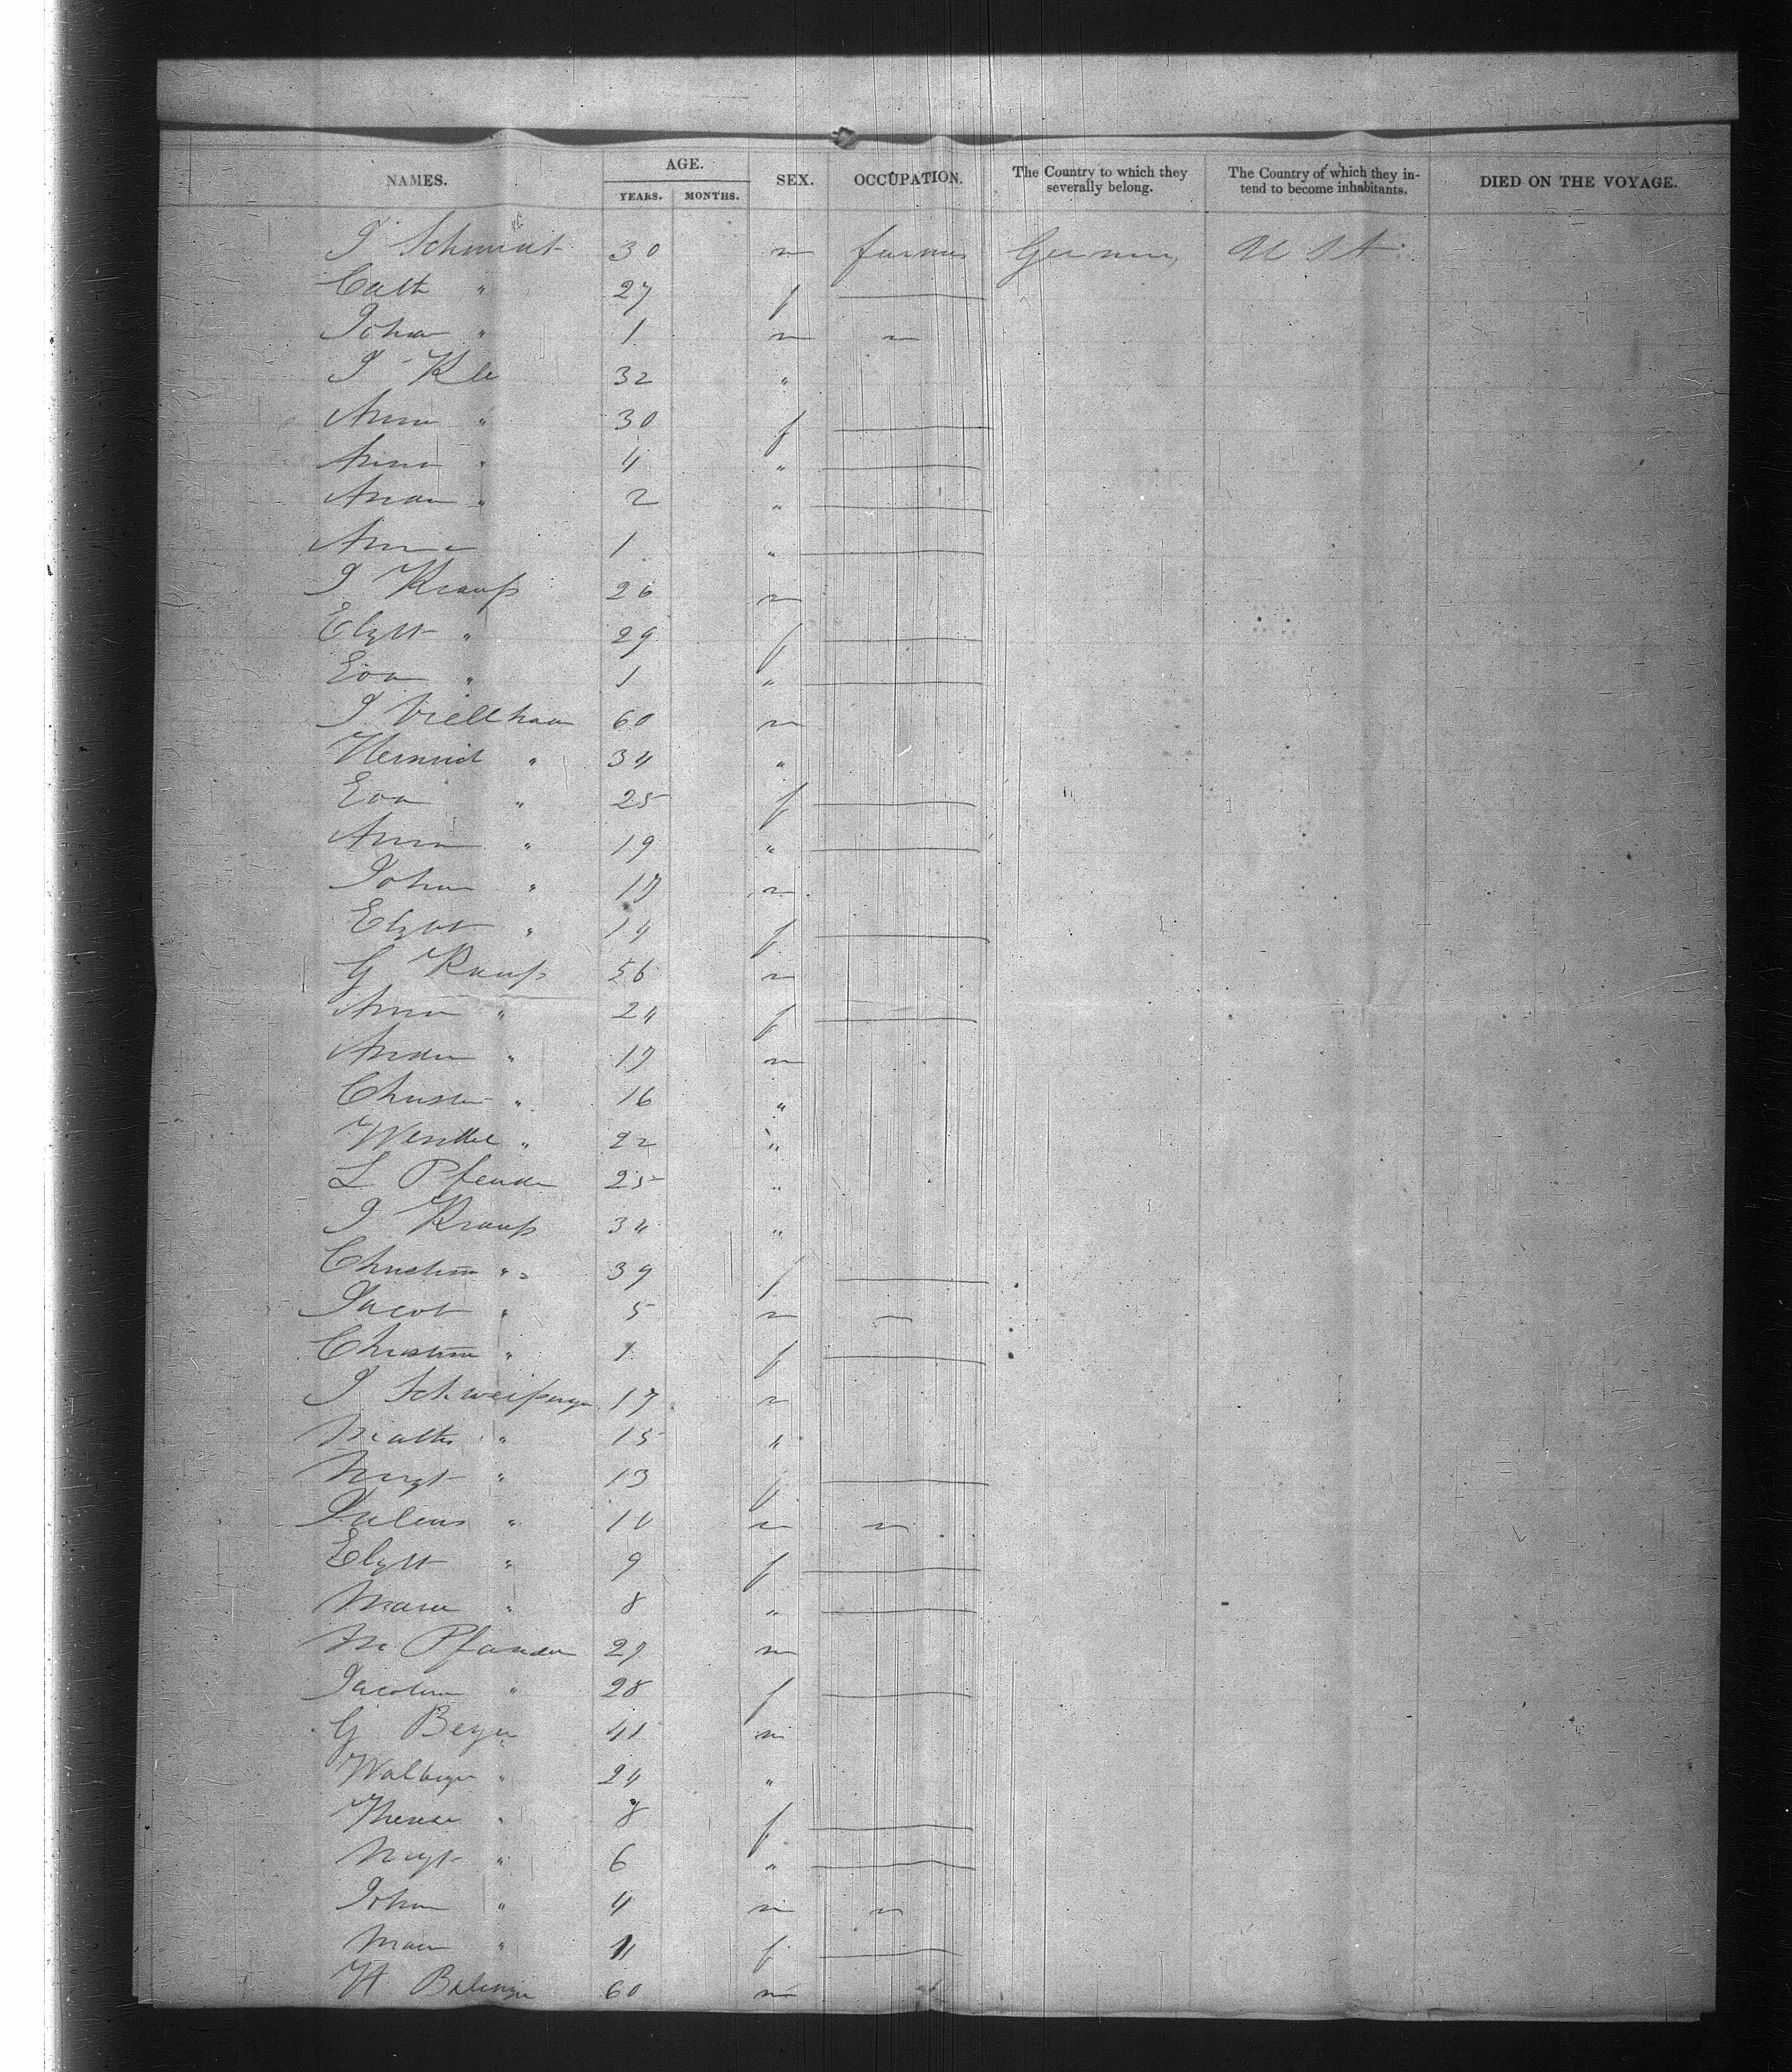 NAMES. AGE. YEARS. MONTHS. SEX. OCCUPATION. The Country to which they severally belong. The Country of which they intend to become inhabitants. DIED ON THE VOYAGE.
J Schmidt 30 m farmer Germany U St
Cath " 27 f
Johan " 1 m
J Kle 32 "
Anna " 30 f
Anna " 4 "
" 2 "
Anna 1 "
J Krauß 26 m
Elzbt " 29 f
Eva " 1 "
J. Viellhaur 60 m
Heinrich " 34 "
Eva " 25 f
Anna " 19 "
Johan " 17 m
Elzbt " 14 f
G Krauß 56 m
Anna " 24 f
Andr " 17 m
Christn " 16 "
" 22 "
L Pfender 25 "
J Krauß 34 "
Christine " 39 f
Jacob " 5 m
Christine " 1 f
J Schweißinger 17 m
Mathis " 15 "
Mrgt " 13 f
Julius " 10 m
Elzbt " 9 f
Maria " 8 "
M Pfander 29 m
Jacobin " 28 f
G Beyer 41 m
Walburga " 24 "
Therese " 8 f
Mrgt " 6 "
Johan " 4 m
Maria " f
H 60 m